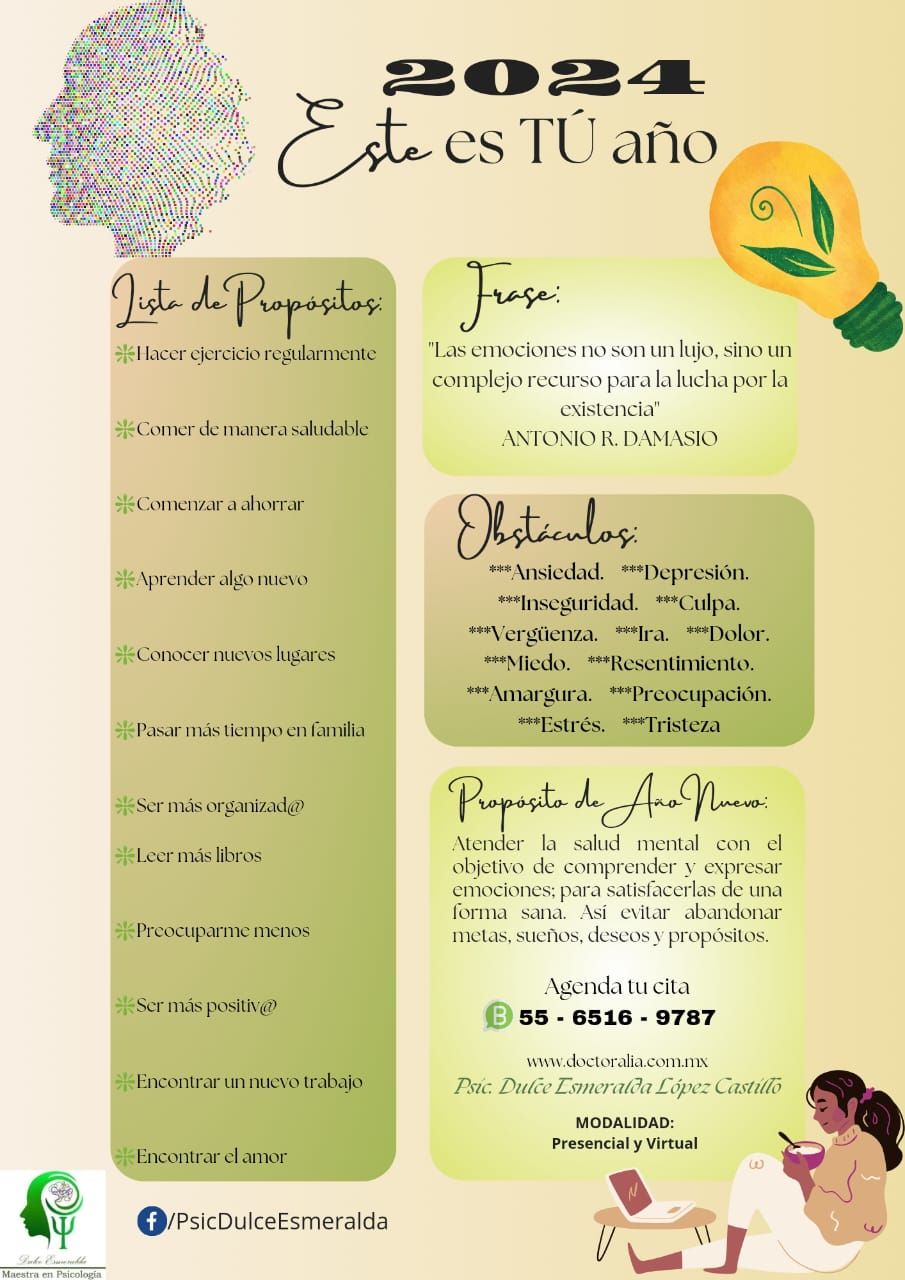 2024
Este es TÚ año
Lista de Propósitos:
Hacer ejercicio regularmente
Comer de manera saludable
Comenzar a ahorrar
Aprender algo nuevo
Conocer nuevos lugares
Pasar más tiempo en familia
Ser más organizad@
Leer más libros
Preocuparme menos
Ser más positiv@
Encontrar un nuevo trabajo
Encontrar el amor
Frase:
"Las emociones no son un lujo, sino un
complejo recurso para la lucha por la
existencia"
ANTONIO R. DAMASIO
Obstáculos:
***Ansiedad. ***Depresión.
***Inseguridad. ***Culpa.
***Vergüenza. ***Ira. ***Dolor.
***Miedo. ***Resentimiento.
***Amargura. ***Preocupación.
***Estrés. ***Tristeza
Propósito de Año Nuevo:
Atender la salud mental con el
objetivo de comprender y expresar
emociones; para satisfacerlas de una
forma sana. Así evitar abandonar
metas, sueños, deseos y propósitos.
Agenda tu cita
B 55 - 6516 - 9787
www.doctoralia.com.mx
Psic. Dulce Esmeralda López Castillo
MODALIDAD:
Presencial y Virtual
f/PsicDulceEsmeralda
Dulce Esmeralda
Maestra en Psicología